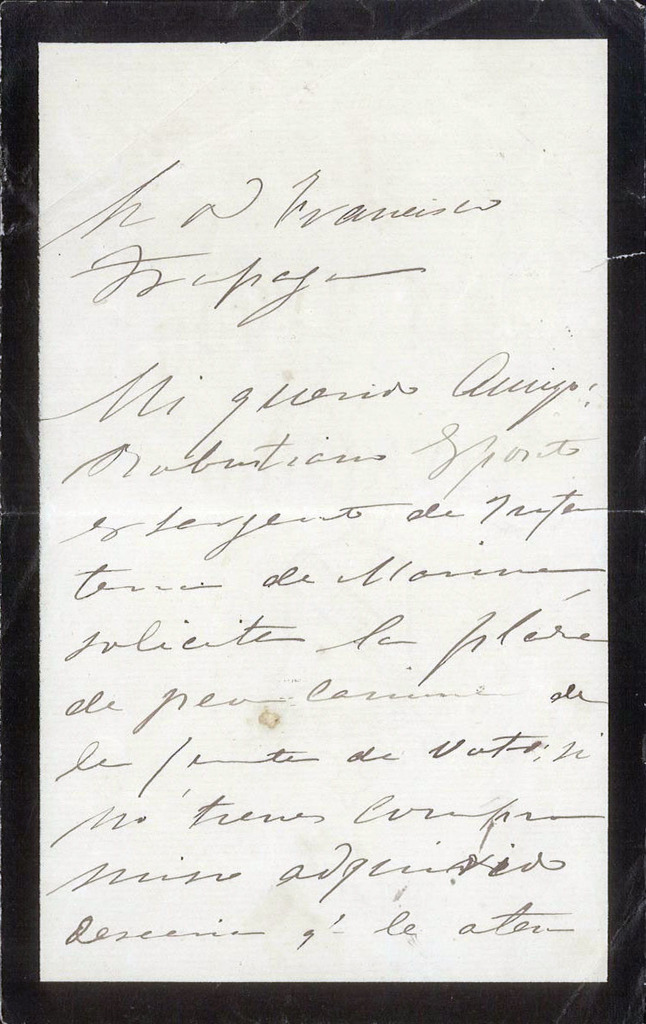 Sr D Francisco
Trapaga
Mi querido Amigo:
Robustiano Sposito
ex sargento de Infan
teria de Marina
solicita la plaza
de peon caminero de
la junta de Voto; si
nó tienes compro
miso adquirido
desearia q.e le aten